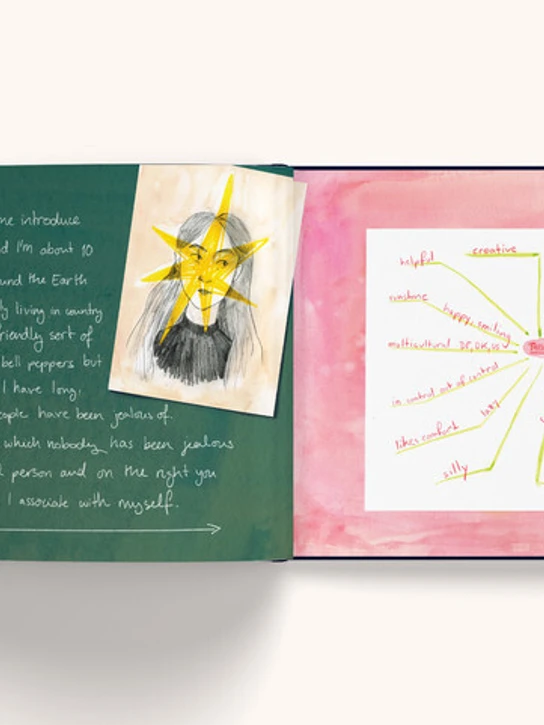 me introduce
d I'm about 10
und the Earth
ly living in country
friendly sort of
bell peppers but
I have long,
ople have been jealous of.
which nobody has been jealous
person and on the right you
I associate with myself.
creative
helpful
sunshine
happy, smiling
multicultural
in control out of control
lazy
likes comfort
silly